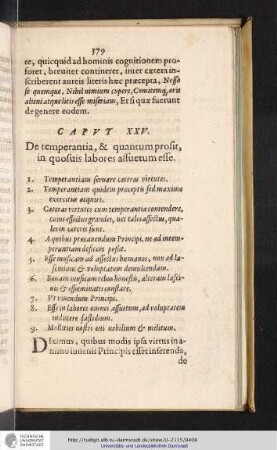 379
re, quicquid ad hominis cognitionem pro-
foret, breviter contineret, inter cætera in-
scriberent aureis literis hæc præcepta, Nosse
se quemque, Nihil nimium cupere, Comitemq; æris
alieni atque litis esse miseriam, Et si quæ fuerunt
de genere eodem.
CAPVT XXV.
De temperantia, & quantum prosit,
in quosuis labores assuetum esse.
1. Temperantiam seruare cæteras virtutes.
2. Temperantiam quidem præceptis sed maximè
exercitio acquiri.
3. Cæteras virtutes cum temperantia contendere,
cuius effectus grandes, nec tales assectus, qua-
les in cæteris sunt.
4. A quibus præcauendum Principi, ne ad intem-
perantiam deficere possit.
5. Esse musicam ad affectus humanos, non ad la-
sciuiam & voluptatem demulcendam.
6. Bonam musicam rebus honestis, alteram lasci-
uis & effœminatis constare.
7. Viuendum Principi.
8. Esse in labores omnes assuetum, ad voluptatem
inducere fastidium.
9. Mollities nostri æui nobilium & militum.
Diximus, quibus modis ipsa virtus in a-
nimo iuuenis Principis esset inserenda,
de
http://tudigit.ulb.tu-darmstadt.de/show/iii-2115/0408
Universitäts- und Landesbibliothek Darmstadt